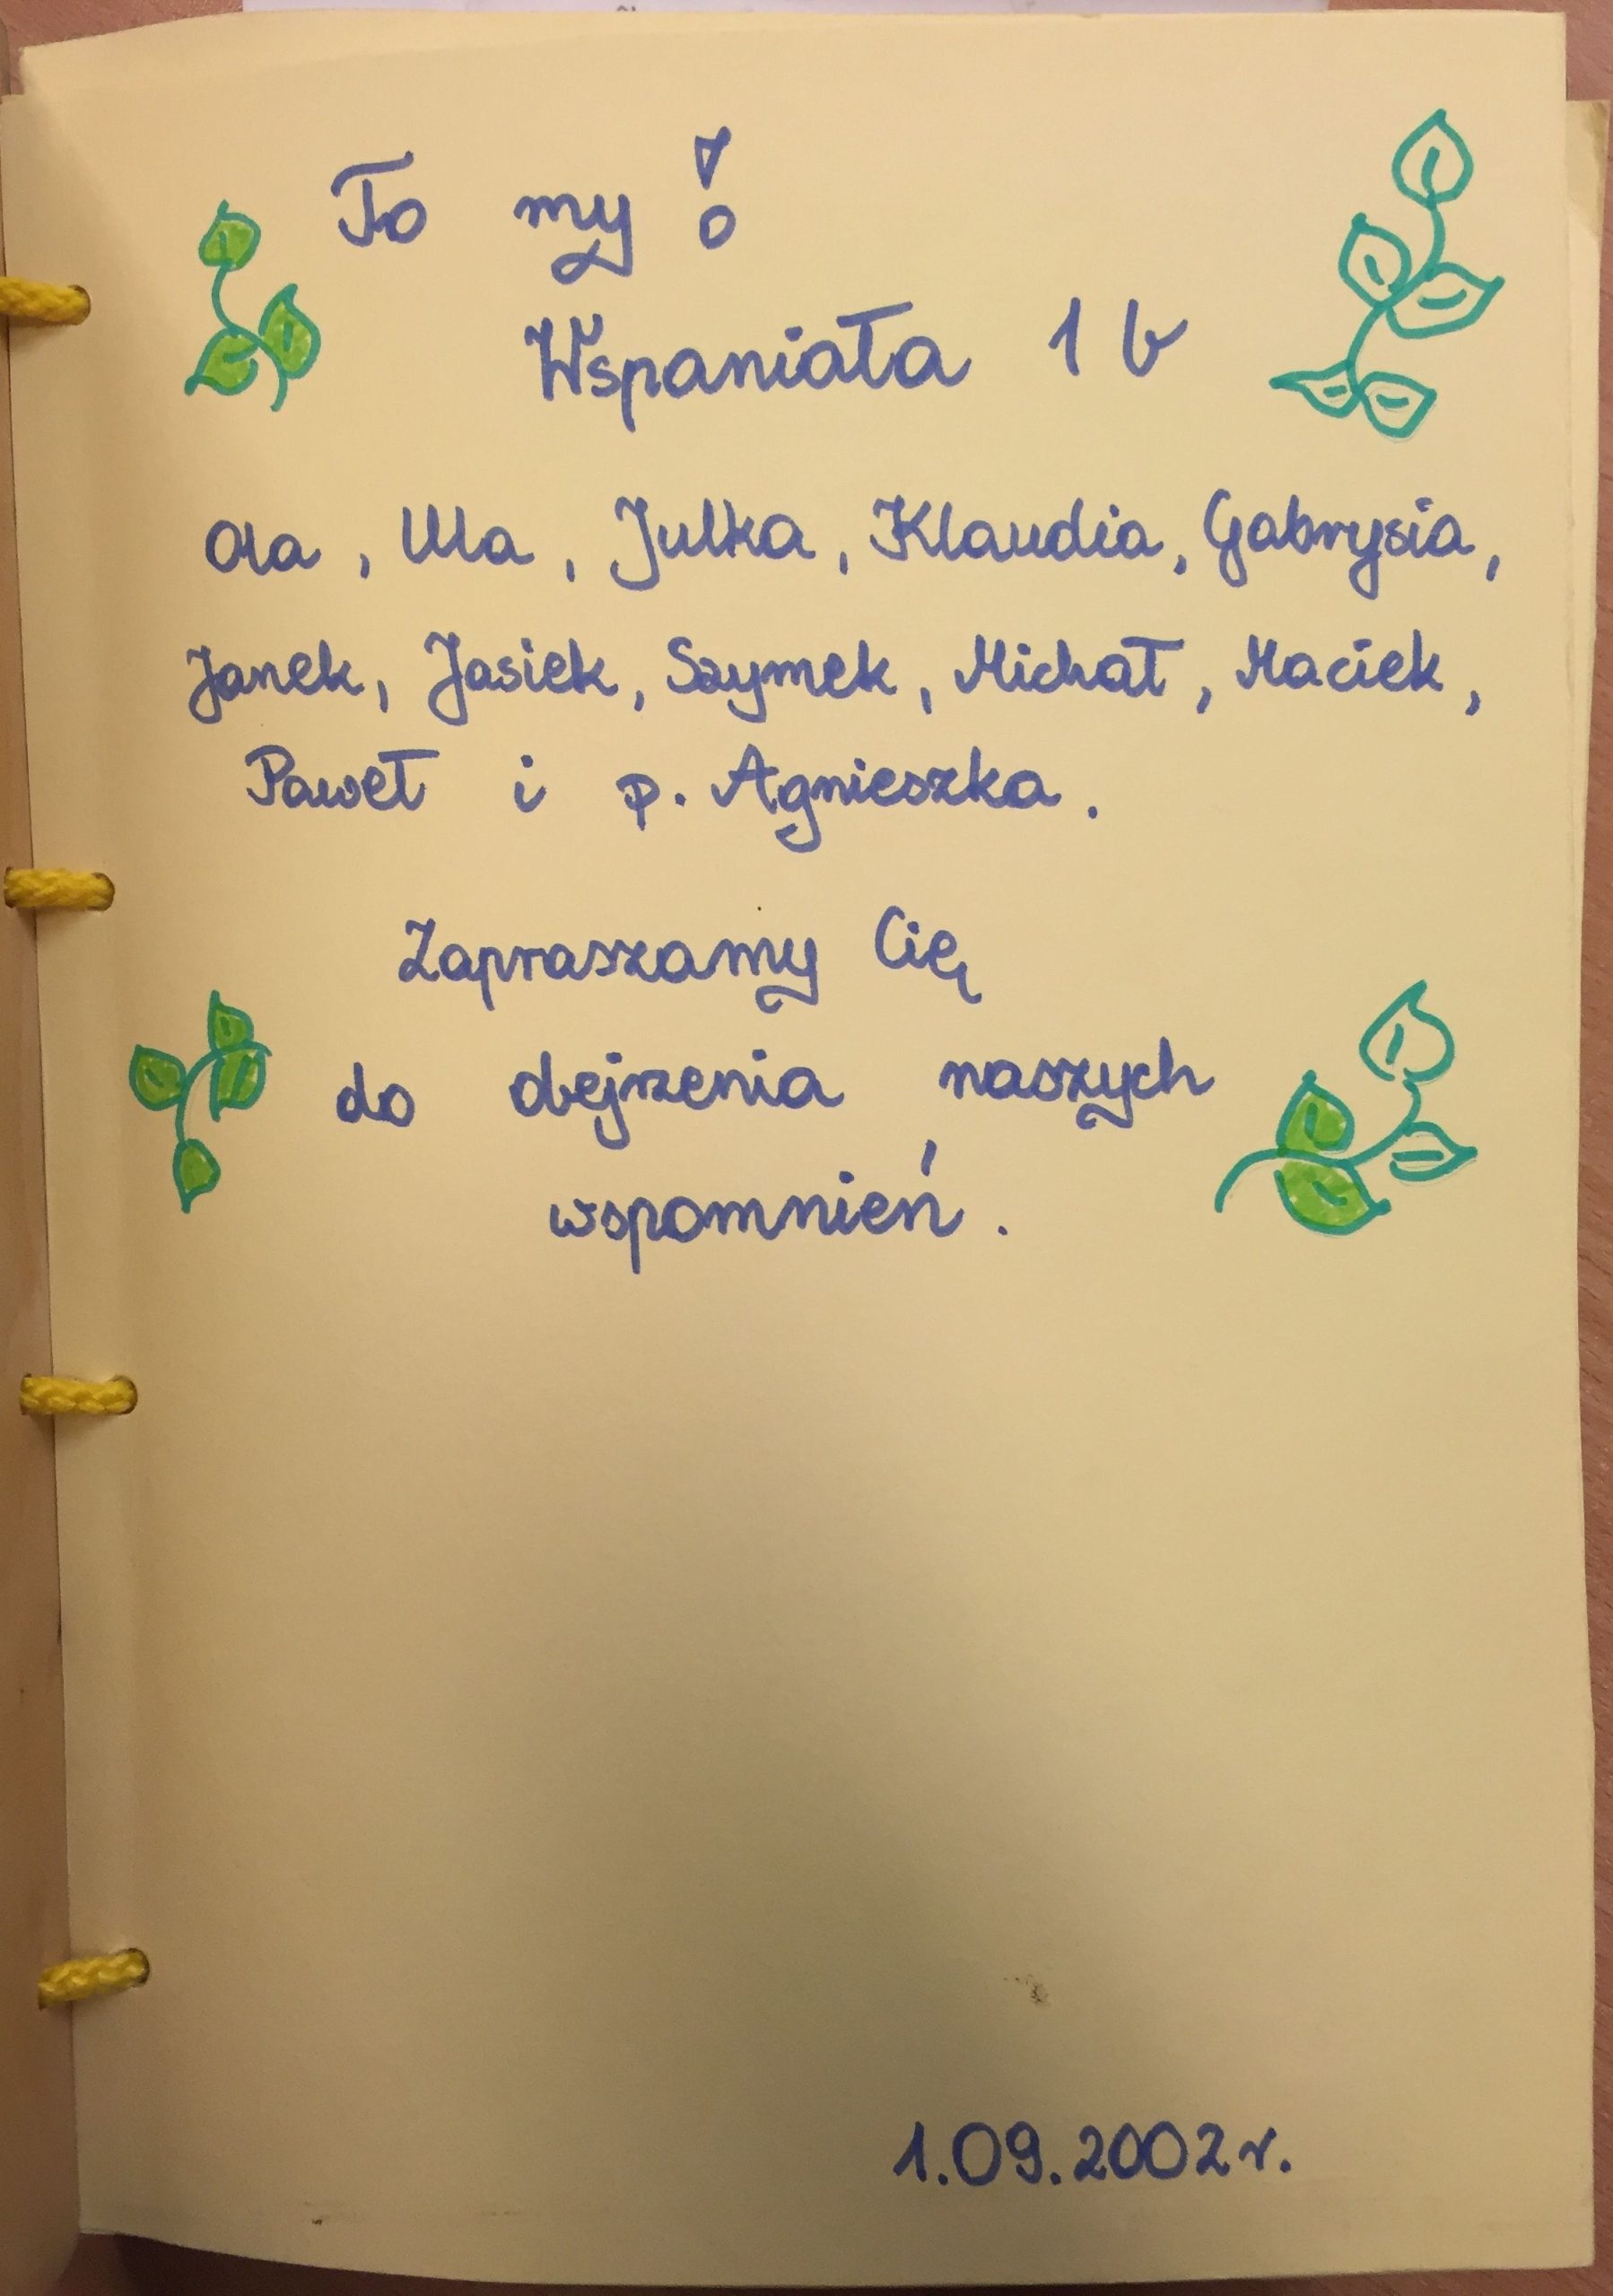 To my!
Wspaniała 1 b
Ola, Ula, Julka, Klaudia, Gabrysia,
Janek, Jasiek, Szymek, Michał, Maciek,
Paweł i p. Agnieszka.
Zapraszamy Cię
do obejrzenia naszych
wspomnień.
1.09.2002r.